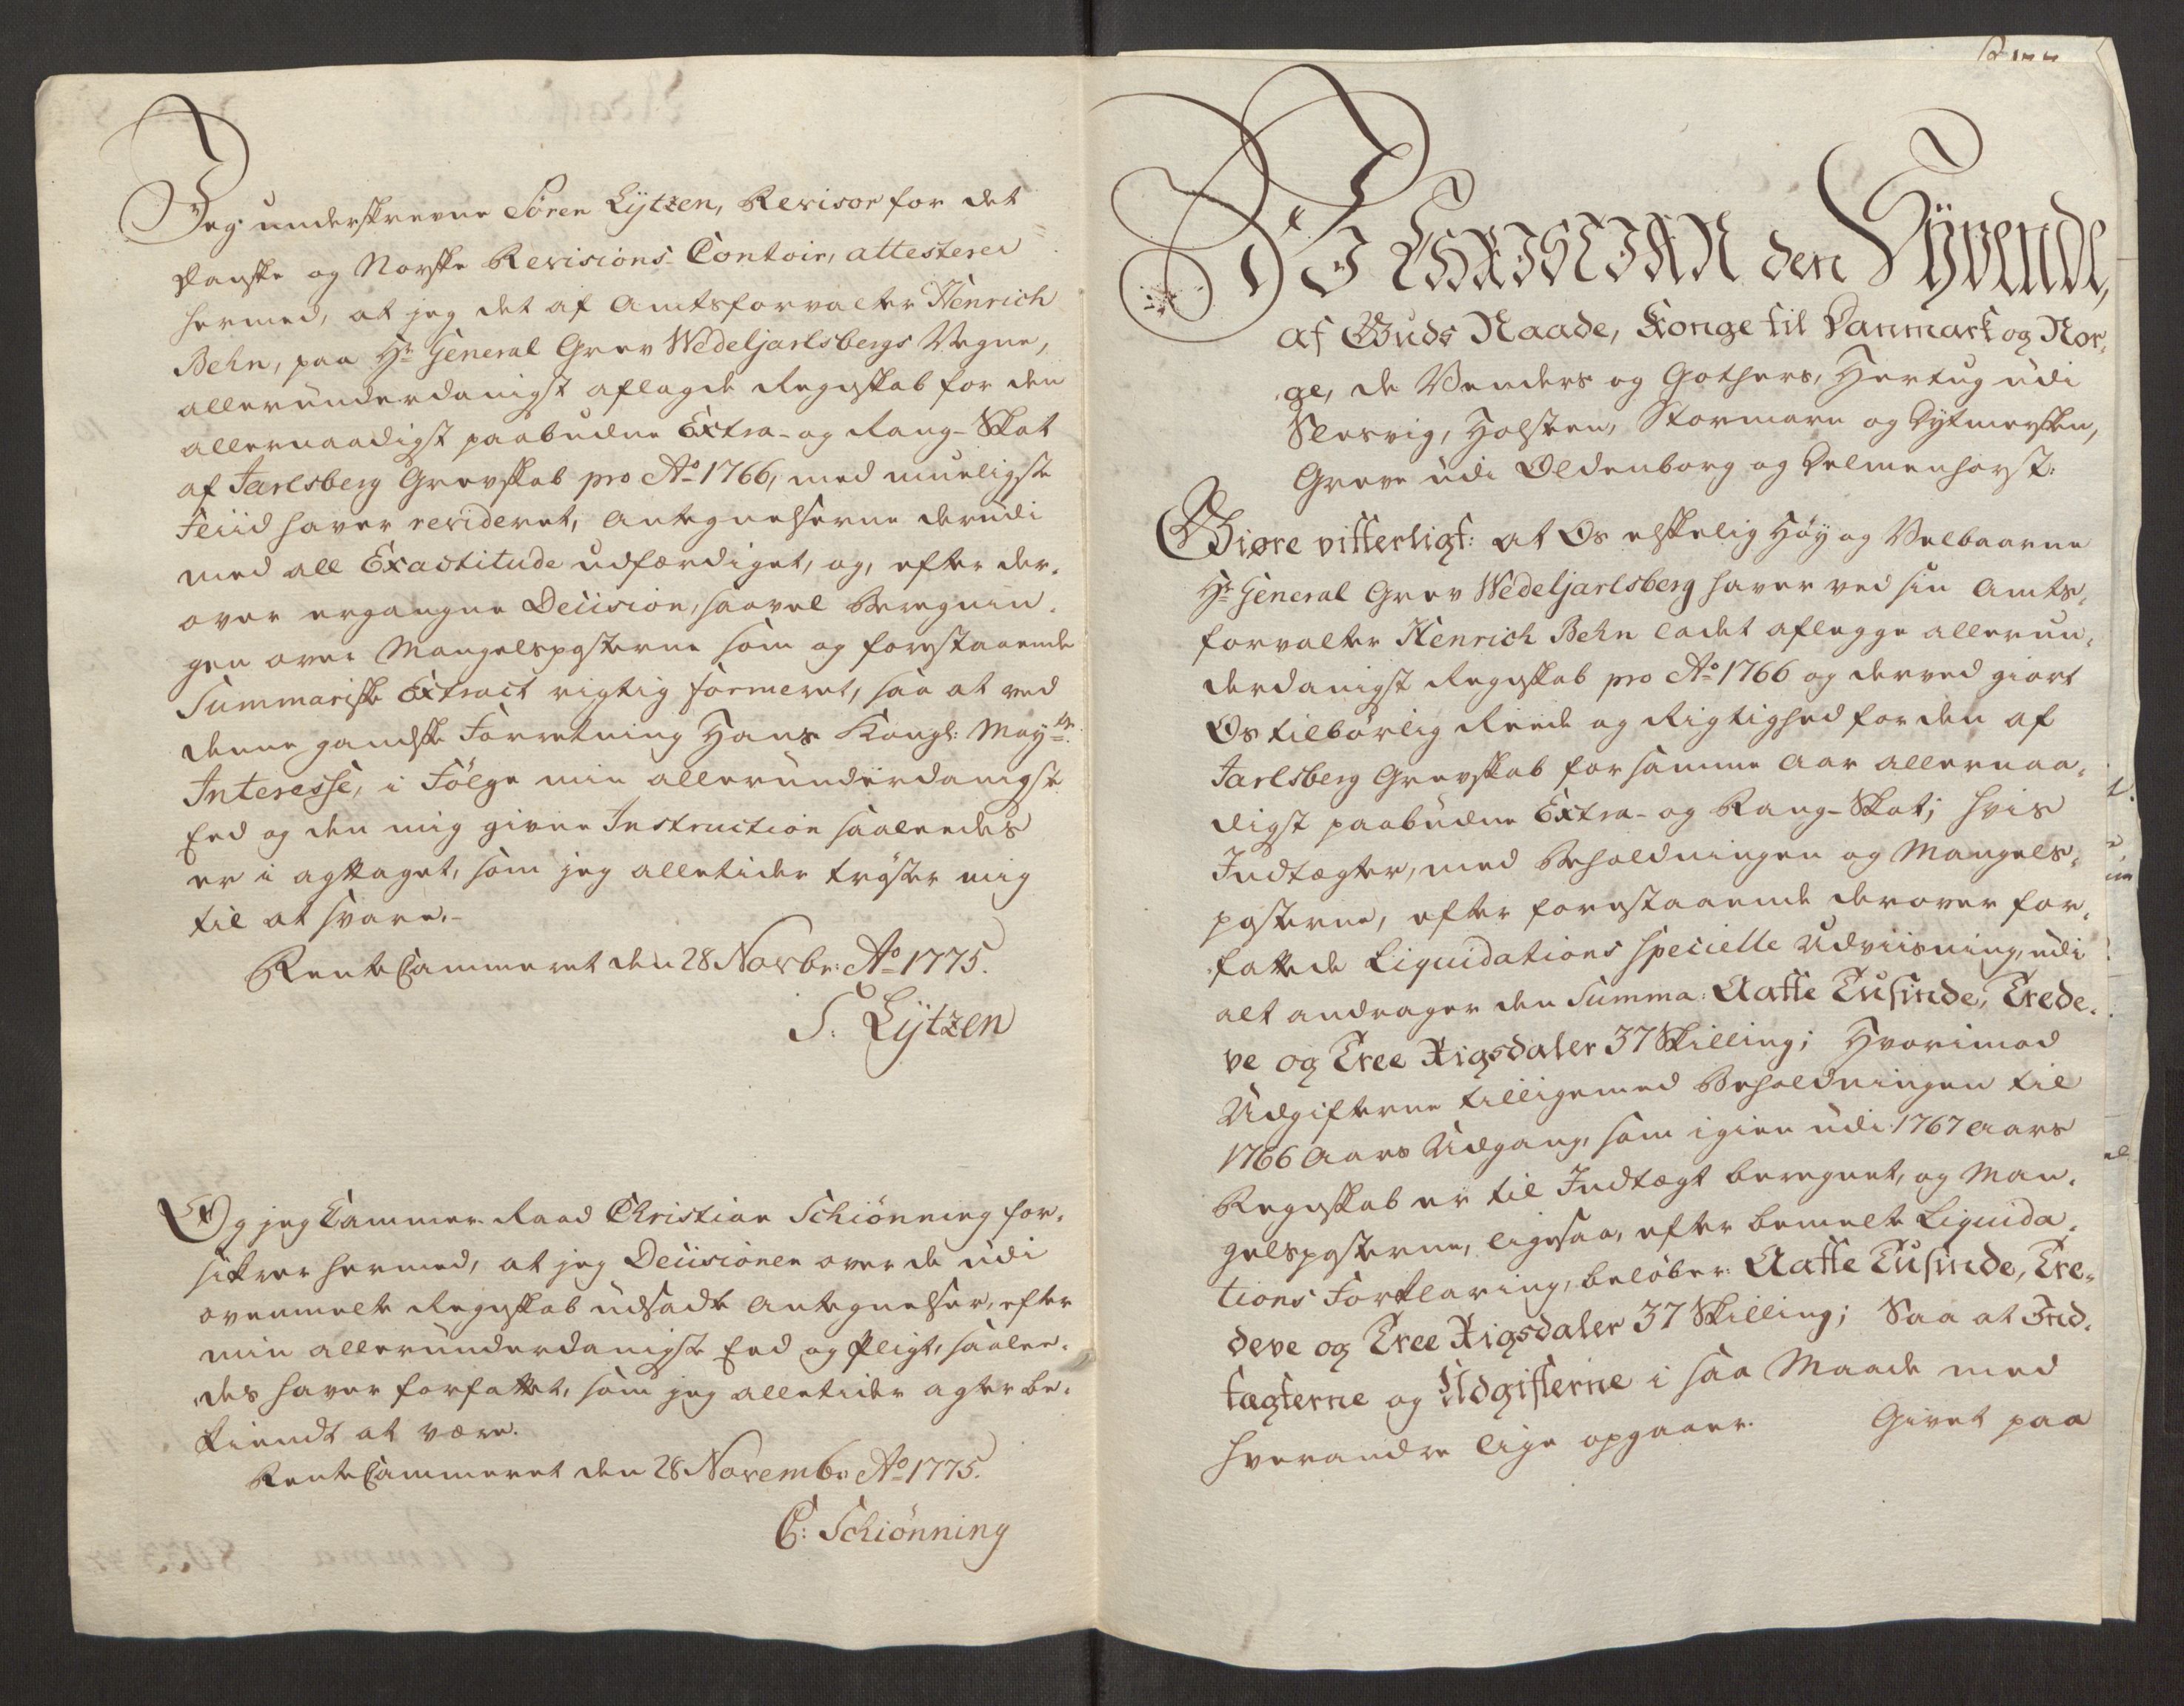 Jeg underskrevne Sören Lÿtzen, Revisor for det
Danske og Norske Revisions-Contoir, attesterer
hermed, at jeg det af Amtsforvalter Henrich
Behn, paa Hr. General Grev Wedeljarlsbergs Vegne,
allerunderdanigst aflagde Regnskab for den
allernaadigst paabudne Extra- og Rang-Skat
af Jarlsberg Grevskab pro Ao 1766, med mueligste
Fliid haver revideret, Antegnelserne derudi
med all Exactitude udfærdiget, og, efter der-
over ergangne Decision, saavel Beregnin-
gen over Mangelsposterne som og forestaaende
Summariske Extract rigtig formeret, saa at ved
denne gandske Forretning Hans Kongl: Mayts
Interesse, i Fölge min allerunderdanigste
Eed og den mig givne Instruction saaledes
er i agttaget, som jeg alletider tröster mig
til at svare.-
RenteCammeret den 28 Novbr: Ao 1775.
S: Lÿtzen
Og jeg Cammer-Raad Christian Schiönning for-
sikrer hermed, at jeg Decisionen over de udi
ovenmelte Regnskab udsadte Antegnelser, efter
min allerunderdanigste Eed og Pligt, saalee-
des haver forfattet, som jeg alletider agter be-
kiendt at være.
RenteCammeret den 28 Novembr Ao 1775.
C: Schiönning
VI CHRISTIAN den Syvende,
af Guds Naade, Konge til Danmark og Nor-
ge, de Venders og Gothers, Hertug udi
Slesvig, Holsten, Stormarn og Dytmersken,
Greve udi Oldenborg og Delmenhorst:
Giøre vitterligt: at Os elskelig Höy og Velbaarne
Hr. General Grev Wedeljarlsberg haver ved sin Amts-
forvalter Henrich Behn ladet aflegge allerun-
derdanigst Regnskab pro Ao 1766 og derved giort
Os tilbörlig Reede og Rigtighed for den af
Jarlsberg Grevskab for samme Aar allernaa-
digst paabudne Extra- og Rang-Skat; hvis
Indtægter, med Beholdningen og Mangels-
posterne, efter forestaaende derover for-
fattede Liquidations specielle Udviisning, udi
alt andrager den Summa: Aatte Tusinde, Trede-
ve og Tree Rigsdaler 37 Skilling; Hvorimod
Udgifterne tilligemed Beholdningen til
1766 Aars Udgang, som igien udi 1767 Aars
Regnskab er til Indtægt beregnet, og Man-
gelsposterne, ligesaa, efter bemelte Liquida-
tions Forklaring, belöber: Aatte Tusinde, Tre-
deve og Tree Rigsdaler 37 Skilling; Saa at Ind-
tægterne og Udgifterne i saa Maade med
hverandre lige opgaaer. Givet paa